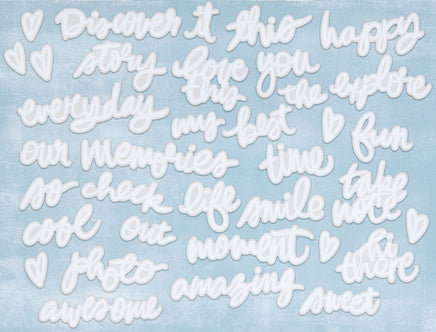 Discover it this happy
story love you
this the explore
everyday my best
our memories time fun
so check life smile take note
cool out moment hi there
photo amazing
awesome sweet